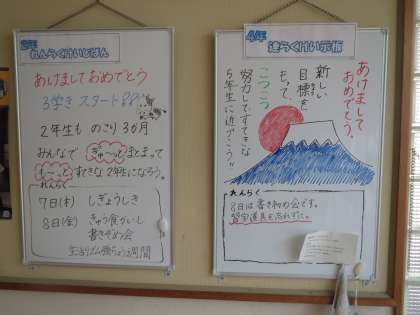 2年
れんらくけいじばん
あけましておめでとう
3学き スタート
2年生も のこり 3カ月
みんなで ぎゅ〜っとまとまって
も〜っとすてきな2年生になろう。
れんらく
7日(木) しぎょうしき
8日(金) きゅう食かいし
書きぞめ会
生活リズム強ちょう週間
4年
連らくけい示板
あけまして
おめでとう。
新しい
目標を
もって、
こつこつ
努力してすてきな
5年生に近づこう!!
れんらく
8日は書き初め会です。
習字道具を忘れずに。